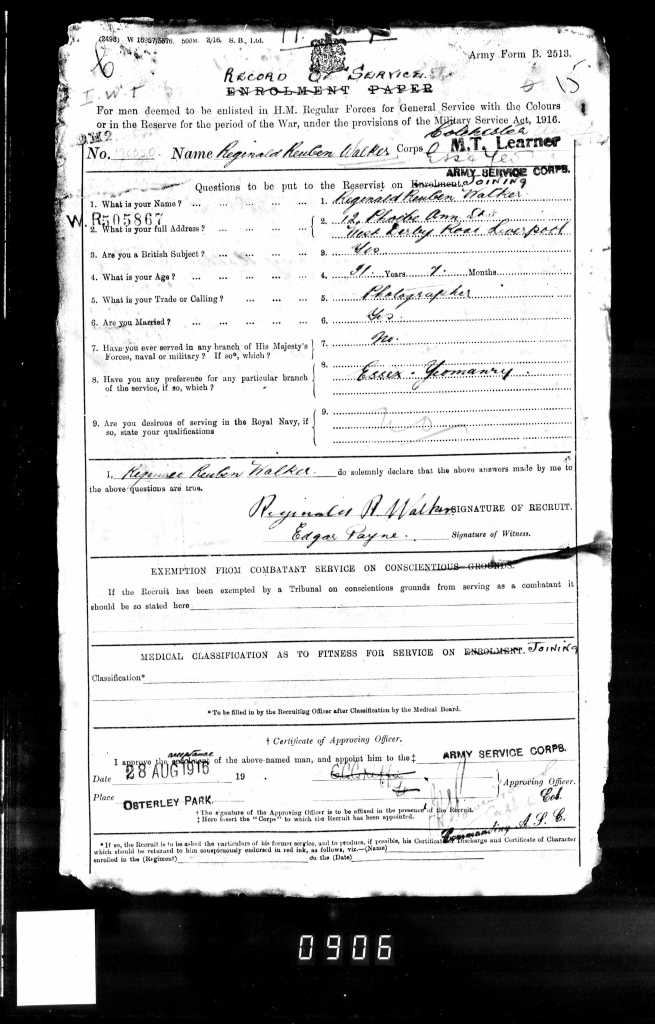 (2498) W 16 57/5576 500M 3/16 S. B., Ltd.
Army Form B. 2513.
6
15
I.W.T
RECORD OF SERVICE
ENROLMENT PAPER
For men deemed to be enlisted in H.M. Regular Forces for General Service with the Colours
or in the Reserve for the period of the War, under the provisions of the Military Service Act, 1916.
M2
Colchester
No. Name Reginald Reuben Walker Corps M.T. Learner
ARMY SERVICE CORPS.
Questions to be put to the Reservist on Enrolment. JOINING
1. What is your Name? 1. Reginald Reuben Walker
W.R 505867
2. What is your full Address? 2. 12, Phoebe Ann St
West Derby Road Liverpool
3. Are you a British Subject? 3. Yes
4. What is your Age? 4. 31 Years 7 Months
5. What is your Trade or Calling? 5. Photographer
6. Are you Married? 6. Yes
7. Have you ever served in any branch of His Majesty's 7. No.
Forces, naval or military? If so*, which?
8. Have you any preference for any particular branch 8. Essex Yeomanry
of the service, if so, which?
9. Are you desirous of serving in the Royal Navy, if 9.
so, state your qualifications
I, Reginald Reuben Walker do solemnly declare that the above answers made by me to
the above questions are true.
Reginald R. Walker SIGNATURE OF RECRUIT.
Edgar Payne. Signature of Witness.
EXEMPTION FROM COMBATANT SERVICE ON CONSCIENTIOUS GROUNDS.
If the Recruit has been exempted by a Tribunal on conscientious grounds from serving as a combatant it
should be so stated here
MEDICAL CLASSIFICATION AS TO FITNESS FOR SERVICE ON ENROLMENT. JOINING
Classification*
*To be filled in by the Recruiting Officer after Classification by the Medical Board.
† Certificate of Approving Officer.
acceptance
I approve the enrolment of the above-named man, and appoint him to the‡ ARMY SERVICE CORPS.
Date 28 AUG 1916 19
Approving Officer.
Place OSTERLEY PARK.
Col.
†The signature of the Approving Officer is to be affixed in the presence of the Recruit.
‡ Here insert the "Corps" to which the Recruit has been appointed.
Commanding A.S.C.
*If so, the Recruit is to be asked the particulars of his former service, and to produce, if possible, his Certificate of Discharge and Certificate of Character
which should be returned to him conspicuously endorsed in red ink, as follows, viz.—(Name)
enrolled in the (Regiment) on the (Date)
0906